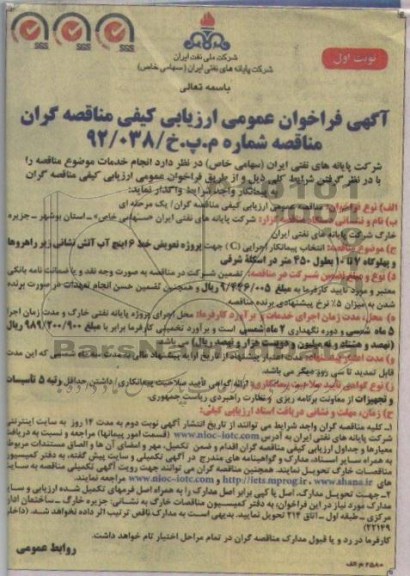 شرکت ملی نفت ایران
شرکت پایانه های نفتی ایران (سهامی خاص)
نوبت اول
باسمه تعالی
آگهی فراخوان عمومی ارزیابی کیفی مناقصه گران
مناقصه شماره م.پ.خ/۹۲/۰۳۸
شرکت پایانه های نفتی ایران (سهامی خاص) در نظر دارد انجام خدمات موضوع مناقصه را
با در نظر گرفتن شرایط کلی ذیل و از طریق فراخوان عمومی ارزیابی کیفی مناقصه گران
به پیمانکار واجد شرایط واگذار نماید:
الف) نوع فراخوان: مناقصه عمومی ارزیابی کیفی مناقصه گران/ یک مرحله ای
ب) نام و نشانی مناقصه گزار: شرکت پایانه های نفتی ایران «سهامی خاص» - استان بوشهر - جزیره
خارک شرکت پایانه های نفتی ایران
ج) موضوع مناقصه: انتخاب پیمانکار اجرایی (C) جهت پروژه تعویض خط ۶ اینچ آب آتش نشانی زیر راهروها
و پهلوگاه ۷ تا ۱۰ بطول ۴۵۰ متر در اسکله شرقی
د) نوع و مبلغ تضمین شرکت در مناقصه: تضمین شرکت در مناقصه به صورت وجه نقد و یا ضمانت نامه بانکی
معتبر و مورد تایید کارفرما به مبلغ ریال و همچنین تضمین حسن انجام تعهدات در صورت برنده
شدن به میزان ۵٪ نرخ پیشنهادی برنده مناقصه
ه) محل، مدت زمان اجرای خدمات و برآورد کارفرما: محل اجرای پروژه پایانه نفتی خارک و مدت زمان اجرا
۵ ماه شمسی و دوره نگهداری ۲ ماه شمسی است و برآورد تخمینی کارفرما برابر با مبلغ ۹۸۹/۲۰۰/۹۰۰ ریال
(نهصد و هشتاد و نه میلیون و دویست هزار و نهصد ریال) می باشد
و) مدت اعتبار پیشنهاد: مدت اعتبار پیشنهاد از تاریخ ارایه پیشنهاد مالی به مدت شمسی که این مدت
قابل تمدید تا سی روز دیگر می باشد.
ز) نوع گواهی تأیید صلاحیت پیمانکاری: ارائه گواهی تأیید صلاحیت پیمانکاری/ داشتن حداقل رتبه ۵ تأسیسات
و تجهیزات از معاونت برنامه ریزی و نظارت راهبردی ریاست جمهوری.
ح) زمان، مهلت و نشانی دریافت اسناد ارزیابی کیفی:
۱- کلیه مناقصه گران واجد شرایط می توانند از تاریخ انتشار آگهی نوبت دوم به مدت ۱۴ روز به سایت اینترنتی
شرکت پایانه های نفتی ایران به آدرس www.nioc-iotc.com (قسمت امور پیمانها) مراجعه و نسبت به دریافت
معیارها و جداول ارزیابی کیفی مناقصه گران اقدام و ضمن تکمیل، مهر و امضای آن ها و الصاق مستندات مربوطه
به همراه سایر اسناد، مدارک و گواهینامه های مندرج در آگهی تکمیلی و سایت پیش گفته، به دفتر کمیسیون
مناقصات خارک تحویل نمایند. همچنین مناقصه گران می توانند جهت رویت آگهی تکمیلی مناقصه به سایت
های www.shana.ir ، http://iets.mporg.ir و www.nioc-iotc.com مراجعه نمایند.
۲- جهت تحویل مدارک، اصل یا کپی برابر اصل مدارک را به همراه اصل فرمهای تکمیل شده ارزیابی و سایر
مدارک مورد نیاز در این فراخوان، به دفتر کمیسیون مناقصات خارک به نشانی: جزیره خارک - ساختمان اداری
مرکزی - طبقه اول - اتاق ۲۱۴ تحویل نمایید. بدیهی است به مدارک ناقص ترتیب اثر داده نخواهد شد. (داخلی
۲۲۱۴۹)
کارفرما در رد و یا قبول مدارک مناقصه گران در تمام مراحل اختیار تام خواهد داشت.
روابط عمومی